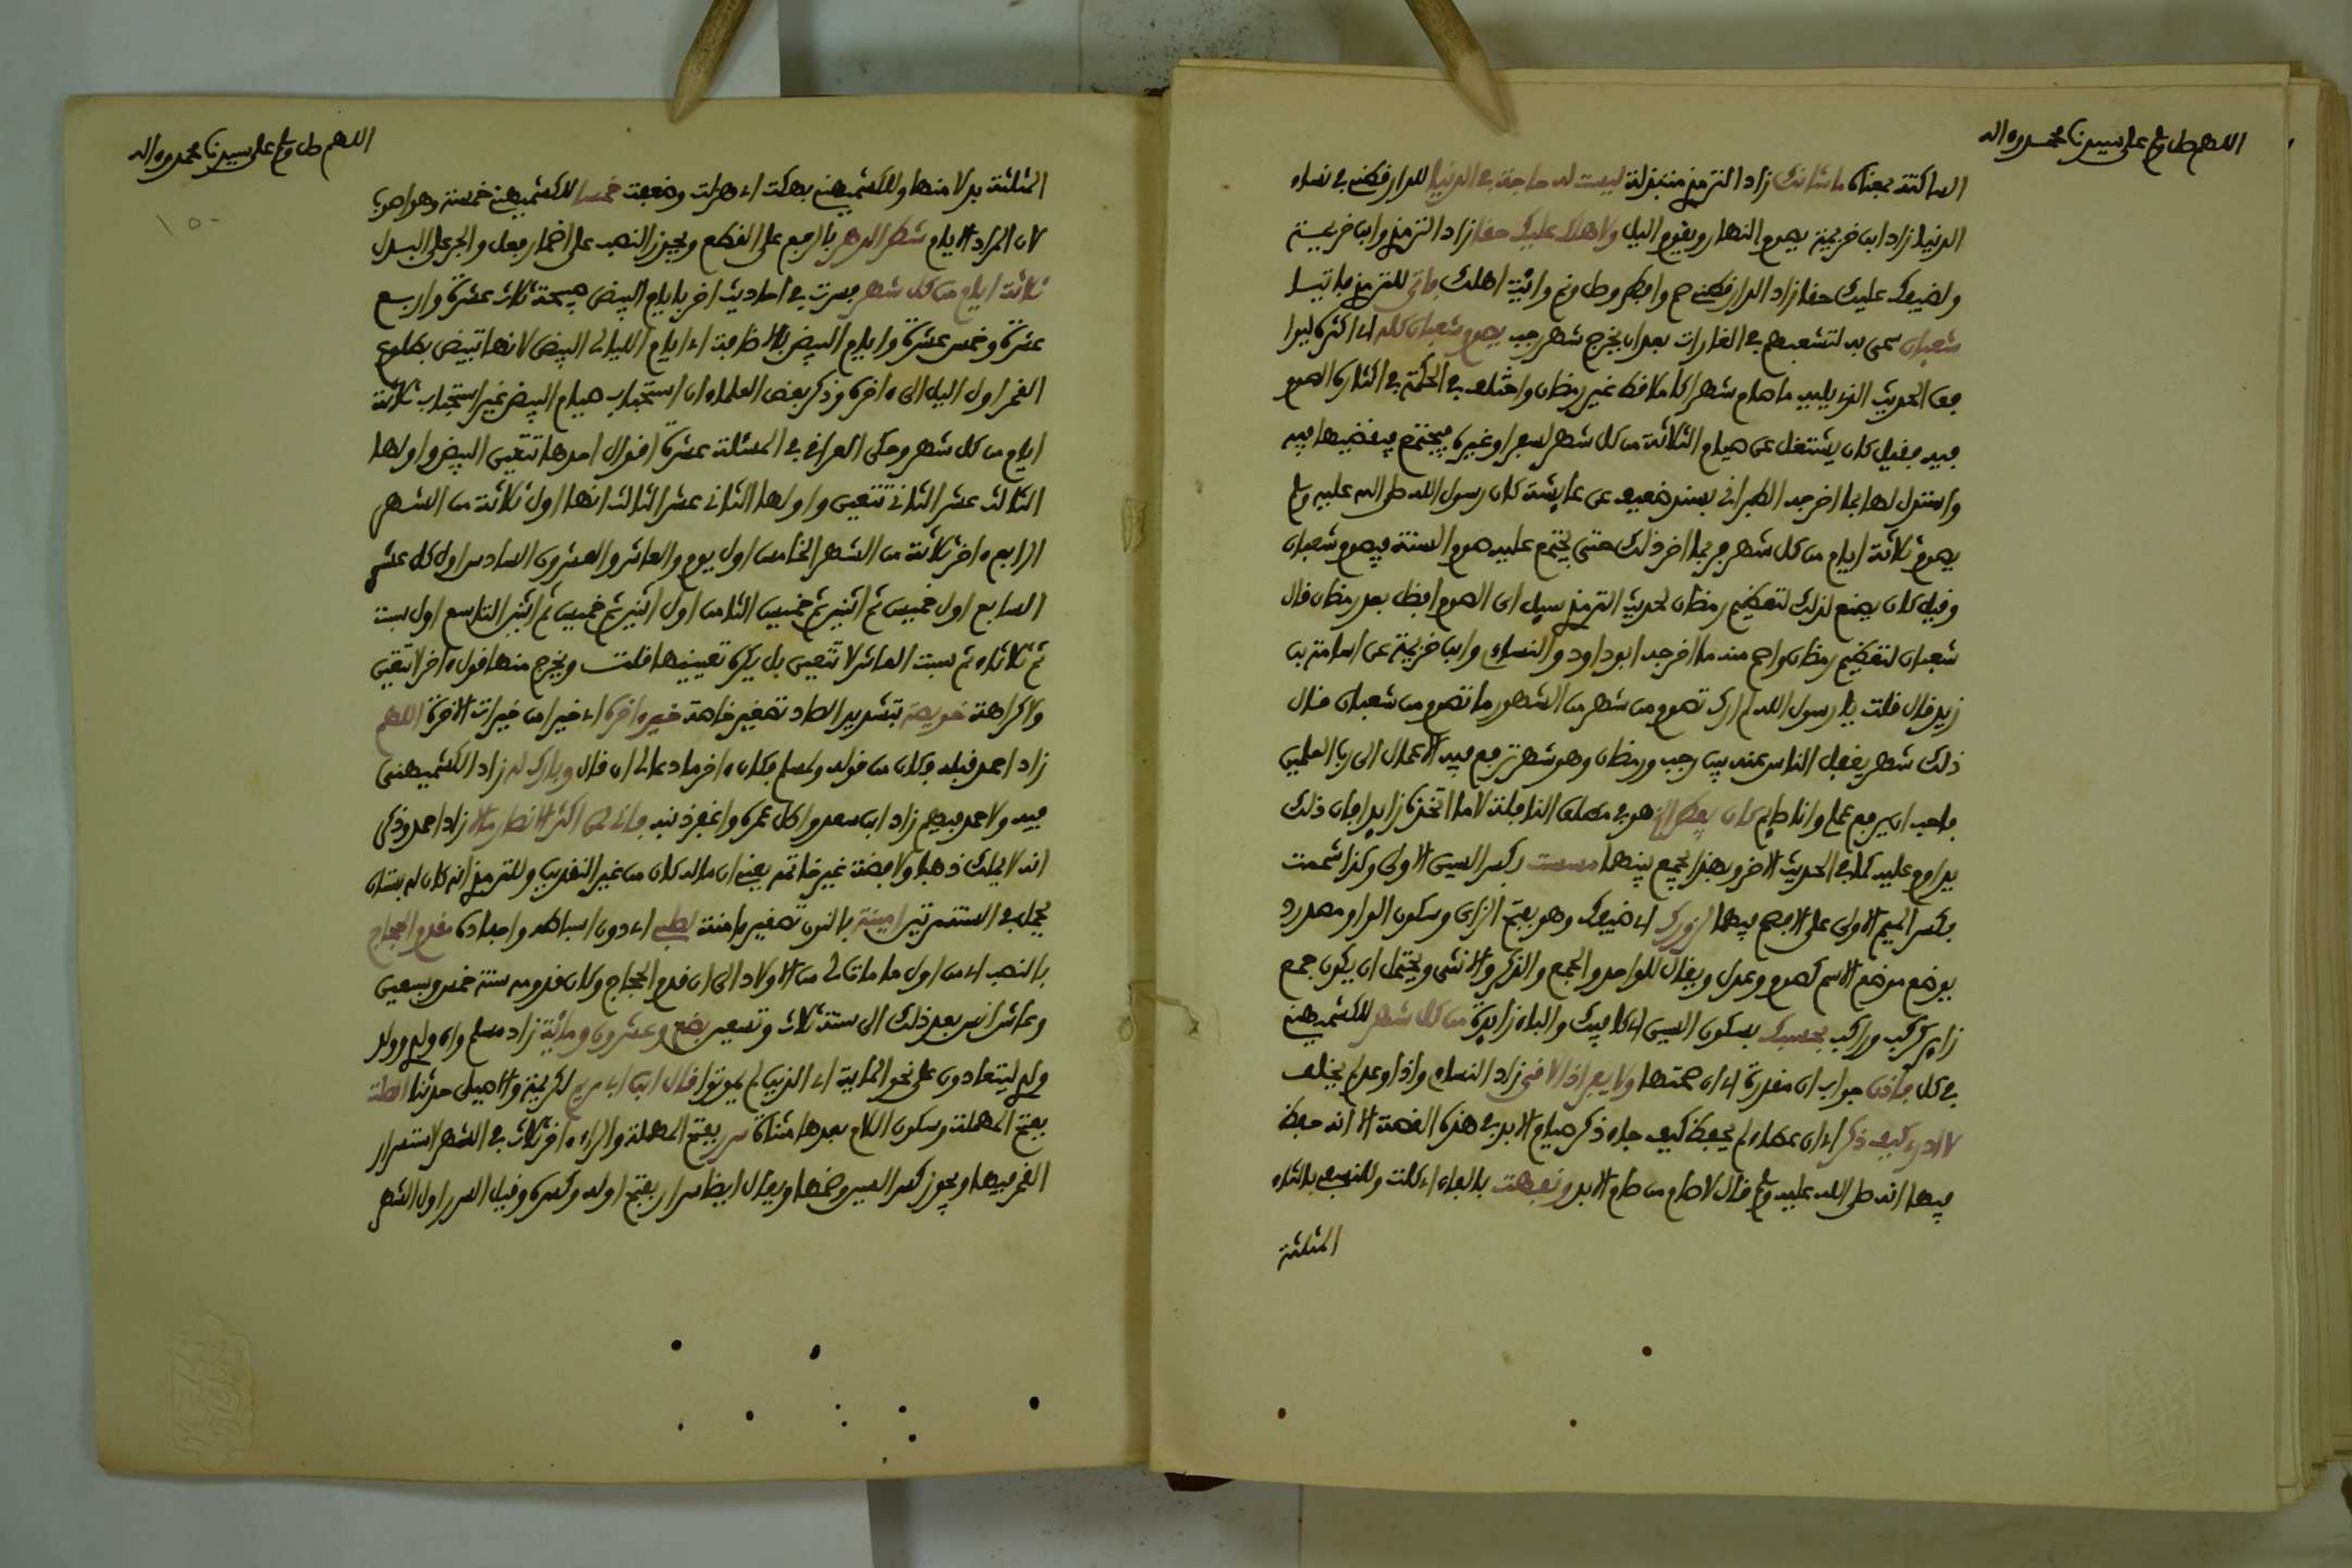 اللهم صل وسلم على سيدنا محمد وءاله
الساكتة بمعناه ما شانك زاد الترمذي متبذلة ليست له حاجة في الدنيا للدارقطني في نساء
الدنيا زاد ابن خزيمة يصوم النهار ويقوم اليل ولاهلك عليك حقا زاد الترمذي وابن خزيمة
ولضيفك عليك حقا زاد الدارقطني صم وافطر وصل ونم وائت اهلك فاتى للترمذي فاتيا
شعبان سمي به لتشعبهم في الغارات بعد ان يخرج شهر رجب يصوم شعبان كله اي اكثره ليوافق
معنى الحديث الذي يليه ما صام شهرا كاملا قط غير رمضان واختلف في الحكمة في اكثاره الصوم
فيه فقيل كان يشتغل عن صيام الثلاثة من كل شهر لسفر او غيره فيجتمع فيقضيها فيه
واستدل لها بما اخرجه الطبراني بسند ضعيف عن عايشة كان رسول الله صلى الله عليه وسلم
يصوم ثلاثة ايام من كل شهر فربما اخر ذلك حتى يجتمع عليه صوم السنة فيصوم شعبان
وقيل كان يصنع لذلك لتعظيم رمضان لحديث الترمذي سيل اي الصوم افضل بعد رمضان قال
شعبان لتعظيم رمضان واصح منه ما اخرجه ابو داود والنساي وابن خزيمة عن اسامة بن
زيد قال قلت يا رسول الله لم ارك تصوم من شهر من الشهور ما تصوم من شعبان قال
ذلك شهر يغفل الناس عنه بين رجب ورمضان وهو شهر ترفع فيه الاعمال الى رب العلمين
فاحب ان يرفع عملي وانا صايم كان يفطر الخ هو في مطلق النافلة لا ما اتخذه زايدا فان ذلك
يداوم عليه كما في الحديث الاخر وبهذا يجمع بينهما مسست بكسر السين الاولى وكذا شممت
بكسر الميم الاولى على الافصح فيهما لزورك اي ضيفك وهو بفتح الزاي وسكون الواو مصدر
يوضع موضع الاسم كصوم وعدل ويقال للواحد والجمع والذكر والانثى ويحتمل ان يكون جمع
زاير كركب وراكب بحسبك بسكون السين اي كافيك والباء زايدة من كل شهر للكشميهني
في كل فاذن جواب ان مقدرة اي ان صمتها ولا يفر اذا لاقى زاد النساي واذا وعد لم يخلف
لا ادري كيف ذكر اي ان عطاء لم يحفظ كيف جاء ذكر صيام الابد في هذه القصة الا انه حفظ
فيها انه صلى الله عليه وسلم قال لا صام من صام الابد ونفهت بالفاء اي كلت وللنسفي بالثاء
المثلثة
اللهم صل وسلم على سيدنا محمد وءاله
١٥٠
المثلثة بدلا منها وللكشميهني نهكت اي هزلت وضعفت خمسا للكشميهني خمسة وهو اصوب
لان المراد الايام شطر الدهر بالرفع على القطع ويجوز النصب على اضمار فعل والجر على البدل
ثلاثة ايام من كل شهر فسرت في احاديث اخر بايام البيض صبيحة ثلاث عشرة واربع
عشرة وخمس عشرة وايام البيض بالاضافة اي ايام الليالي البيض لانها تبيض بطلوع
القمر اول اليل الى ءاخره وذكر بعض العلماء ان استحباب صيام البيض غير استحباب ثلاثة
ايام من كل شهر وحكى العراقي في المسئلة عشرة اقوال احدها تتعين البيض واولها
الثالث عشر الثاني تتعين واولها الثاني عشر الثالث انها اول ثلاثة من الشهر
الرابع ءاخر ثلاثة من الشهر الخامس اول يوم والعاشر والعشرون السادس اول كل عشر
السابع اول خميس ثم اثنين ثم خميس الثامن اول اثنين ثم خميس ثم اثنين التاسع اول سبت
ثم ثلاثاء ثم سبت العاشر لا تتعين بل يكره تعيينها قلت ويخرج منها قول ءاخر لا تعين
ولا كراهة خويصة بتشديد الصاد تصغير خاصة خير ءاخرة اي خيرا من خيرات الاخرة اللهم
زاد احمد قبله فكان من قوله ولمسلم فكان ءاخر ما دعا لي ان قال وبارك له زاد الكشميهني
فيه ولاحمد فيهم زاد ابن سعد واطل عمره واغفر ذنبه فاني لمن اكثر الانصار مالا زاد احمد وذكر
انه لا يملك ذهبا ولا فضة غير خاتمه يعني ان ماله كان من غير النقدين وللترمذي انه كان له بستان
يحمل في السنة مرتين امينة بالنون تصغير ءامنة لصلبي اي دون اسباطه واحفاده مقدم الحجاج
بالنصب اي من اول ما مات لي من الاولاد الى ان قدم الحجاج وكان قدومه سنة خمس وسبعين
وعاش انس بعد ذلك الى سنة ثلاث وتسعين بضع وعشرون ومائة زاد مسلم وان ولدي وولد
ولدي ليتعادون على نحو الماية اي الذين لم يموتوا قال ابن ابي مريم لكريمة والاصيلي حدثنا الصلت
بفتح المهملة وسكون اللام بعدها مثناة سرر بفتح المهملة والراء ءاخر ثلاث في الشهر لاستسرار
القمر فيها ويجوز كسر السين وضمها ويقال ايضا سرار بفتح اوله وكسره وقيل السرر اول الشهر